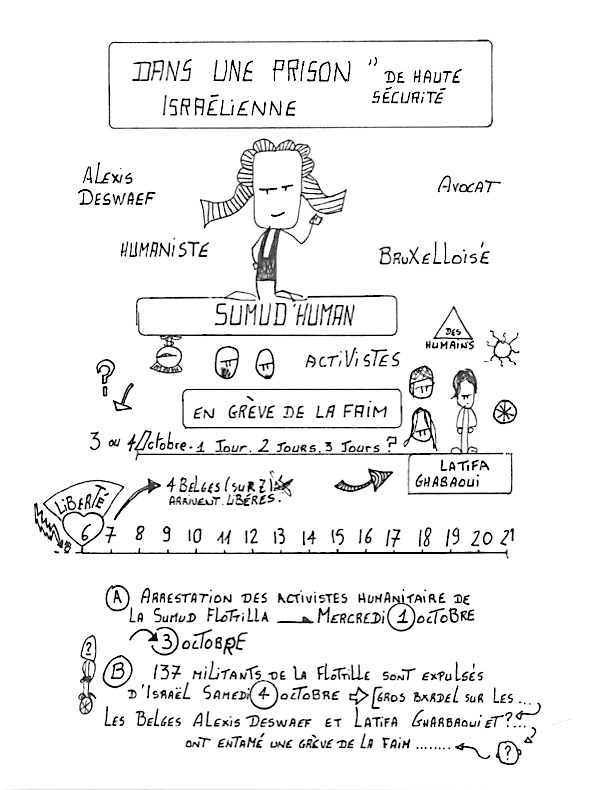 DANS UNE PRISON " DE HAUTE
ISRAËLIENNE SÉCURITÉ
ALEXIS
DESWAEF
AVOCAT
HUMANISTE
BRUXELLOISE
SUMUD'HUMAN
DES
HUMAINS
ACTIVISTES
?
EN GRÈVE DE LA FAIM
3 ou 4 Octobre - 1 JOUR. 2 JOURS. 3 JOURS ?
LATIFA
GHABAOUI
LIBERTÉ
4 BELGES (SUR 7)
ARRIVENT. LIBÉRES.
6 7 8 9 10 11 12 13 14 15 16 17 18 19 20 21
A ARRESTATION DES ACTIVISTES HUMANITAIRE DE
LA SUMUD FLOTILLA MERCREDI 1 OCTOBRE
3 OCTOBRE
?
B 137 MILITANTS DE LA FLOTILLE SONT EXPULSÉS
D'ISRAËL SAMEDI 4 OCTOBRE ⇨ [GROS BORDEL SUR LES ...
LES BELGES ALEXIS DESWAEF ET LATIFA GHARBAOUI ET ?...
ONT ENTAMÉ UNE GRÈVE DE LA FAIM ........ ?